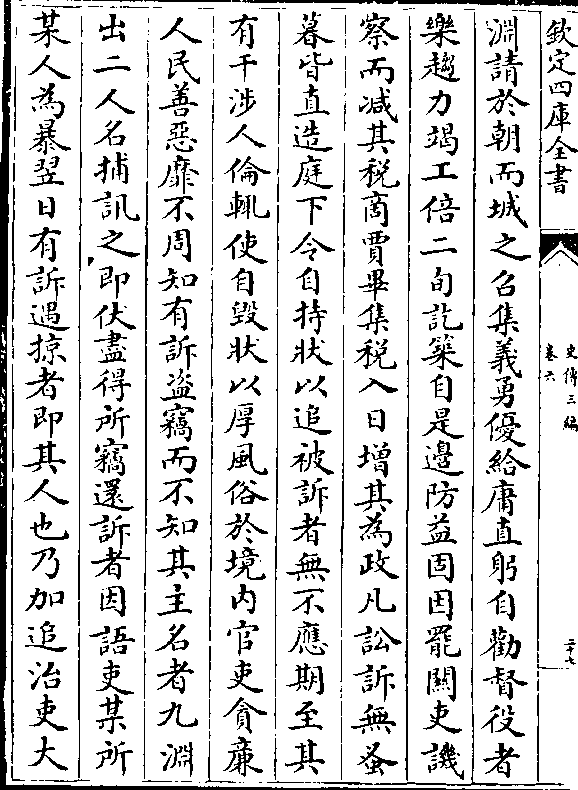 欽定四庫全書
史傳三編
卷六
二十七
淵請於朝而城之召集義勇優給庸直躬自勸督役者
樂趨力竭工倍二旬訖築自是邊防益固因罷關吏譏
察而减其税商賈畢集税入日增其為政凡訟訴無蚤
暮皆直造庭下令自持狀以追被訴者無不應期至其
有干涉人倫輒使自毁狀以厚風俗於境内官吏貪廉
人民善惡靡不周知有訴盗竊而不知其主名者九淵
出二人名捕訊之即伏盡得所竊還訴者因語吏某所
某人為暴翌日有訴遇掠者即其人也乃加追治吏大